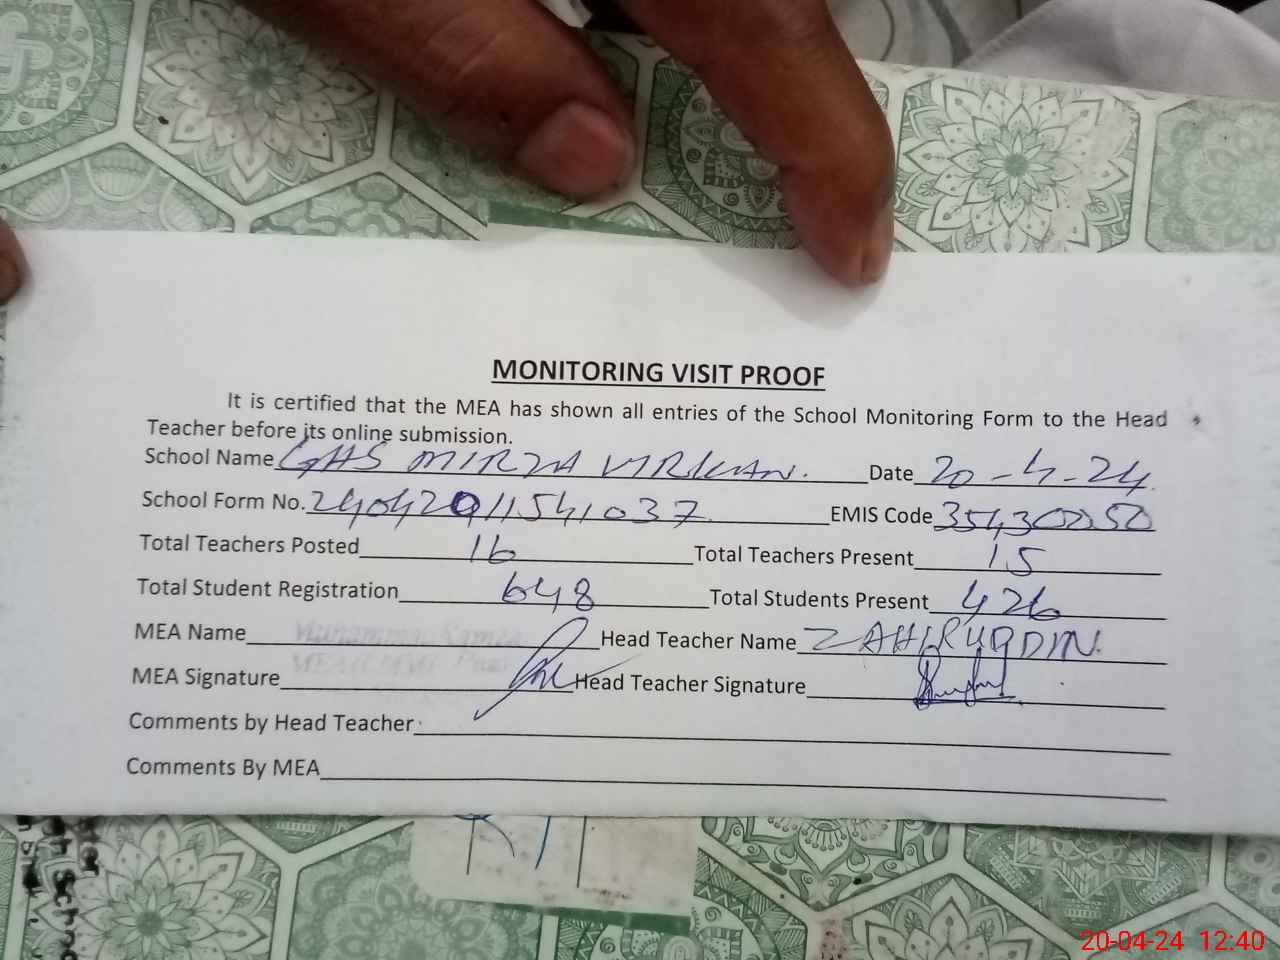 MONITORING VISIT PROOF
It is certified that the MEA has shown all entries of the School Monitoring Form to the Head
Teacher before its online submission.
School Name GHS MIRZA VIRKAN. Date 20-4-24
School Form No. 24042011541037 EMIS Code
Total Teachers Posted 16 Total Teachers Present 15
Total Student Registration 648 Total Students Present 426
MEA Name Head Teacher Name ZAHIRUDDIN.
MEA Signature Head Teacher Signature
Comments by Head Teacher
Comments By MEA
20-04-24 12:40